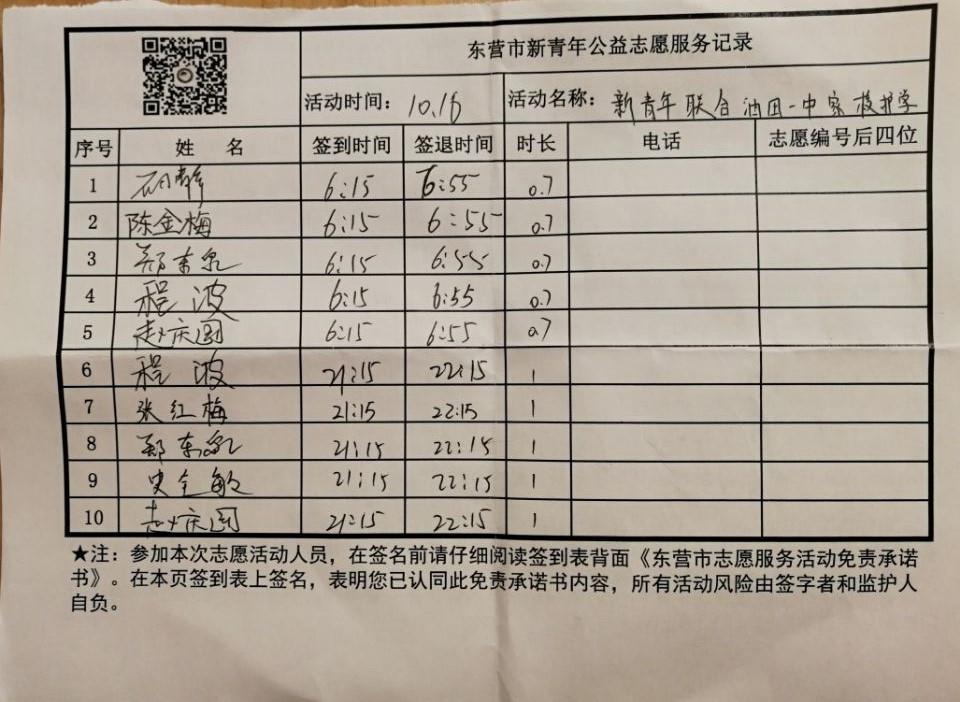 东营市新青年公益志愿服务记录
活动时间：10.16 活动名称：新青年联合油田一中家校共学
序号 姓 名 签到时间 签退时间 时长 电话 志愿编号后四位
1 6:15 6:55 0.7
2 陈金梅 6:15 6:55 0.7
3 郑东泉 6:15 6:55 0.7
4 程波 6:15 6:55 0.7
5 赵庆国 6:15 6:55 0.7
6 程波 21:15 22:15 1
7 张红梅 21:15 22:15 1
8 郑东泉 21:15 22:15 1
9 史全敏 21:15 22:15 1
10 赵庆国 21:15 22:15 1
★注：参加本次志愿活动人员，在签名前请仔细阅读签到表背面《东营市志愿服务活动免责承诺
书》。在本页签到表上签名，表明您已认同此免责承诺书内容，所有活动风险由签字者和监护人
自负。